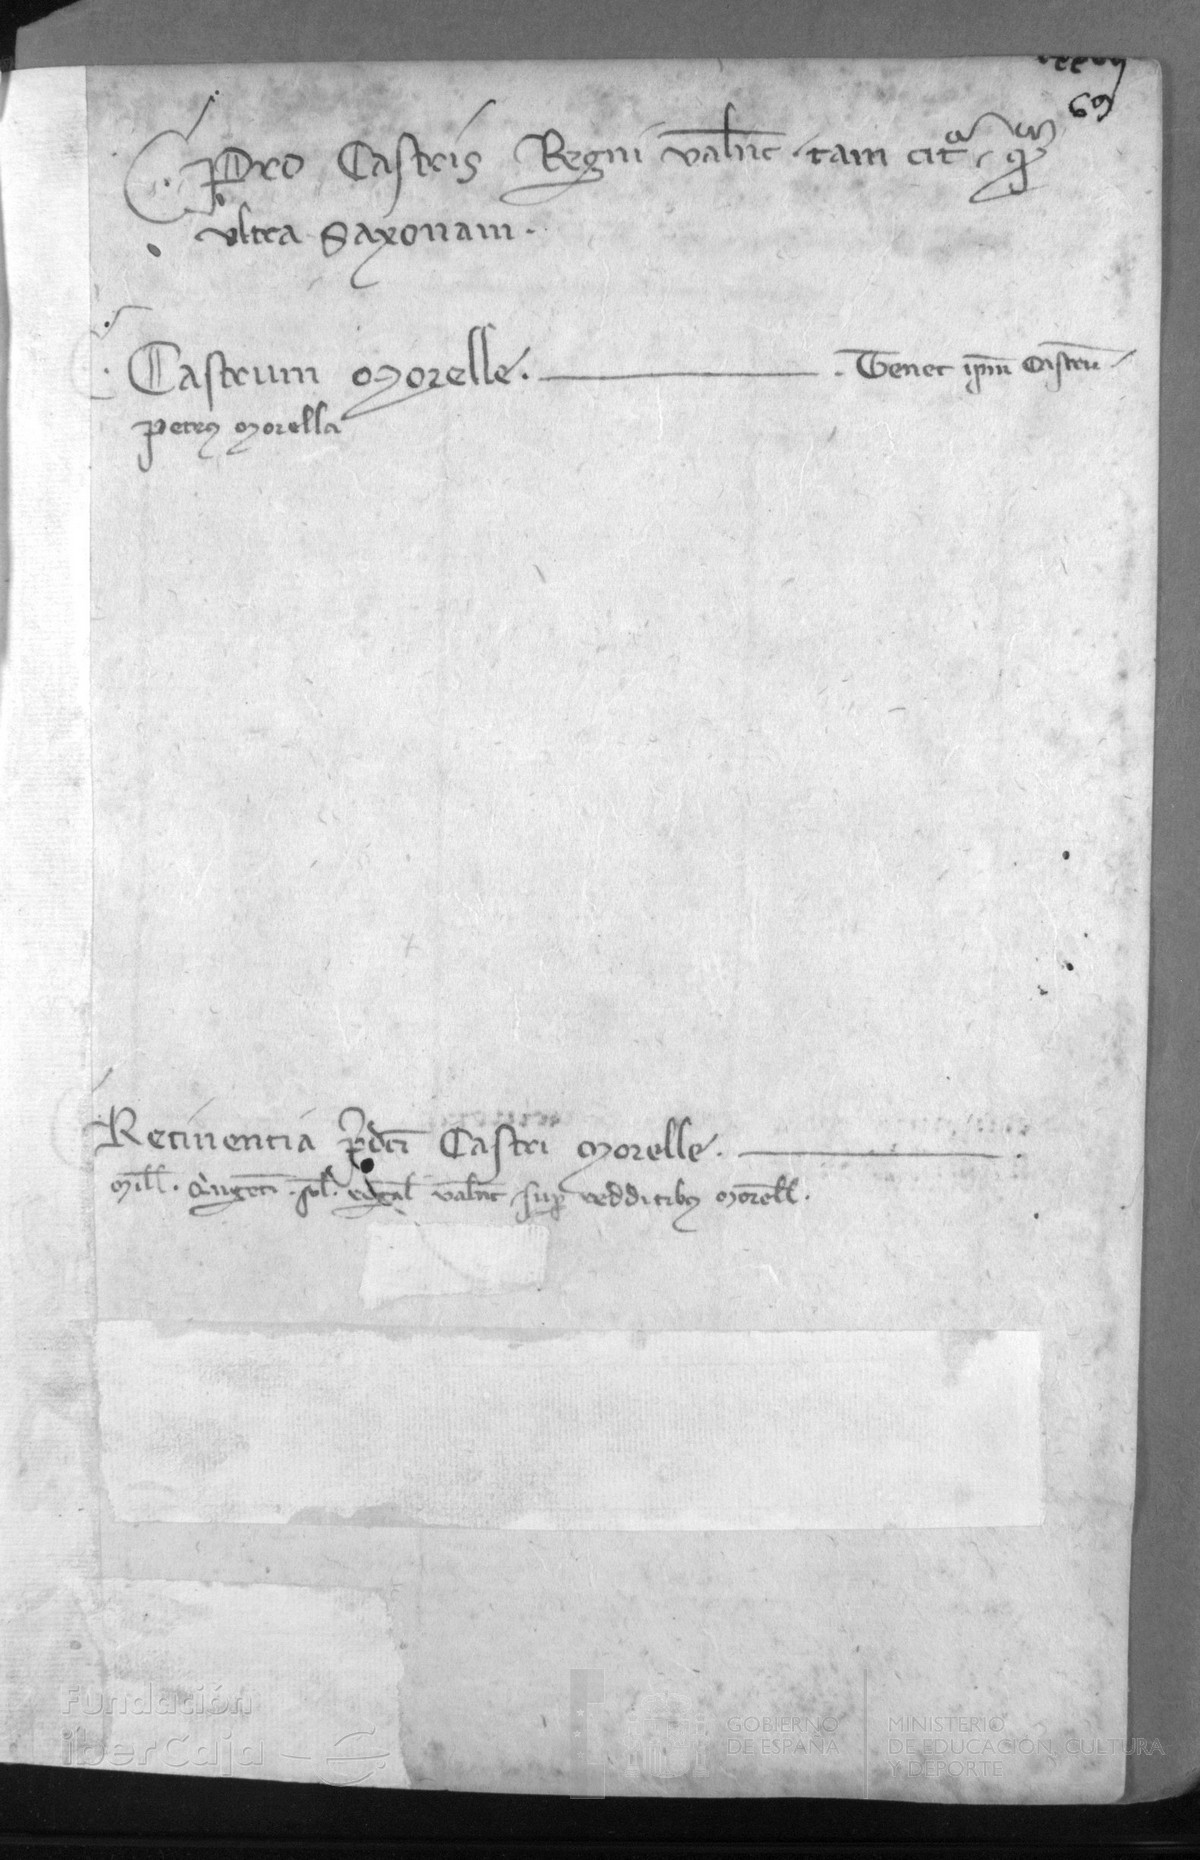 69
Pro Castris Regni valnc tam cit^a q^am
ultra Saxonam.
Castrum Morelle. Tenet ipm Castru
petrus morella
Retinentia p̃dci Castri Morelle.
mill. qugeti sol. regal valnc sup redditibus morell.
Fundación
iberCaja
GOBIERNO
DE ESPAÑA
MINISTERIO
DE EDUCACIÓN, CULTURA
Y DEPORTE